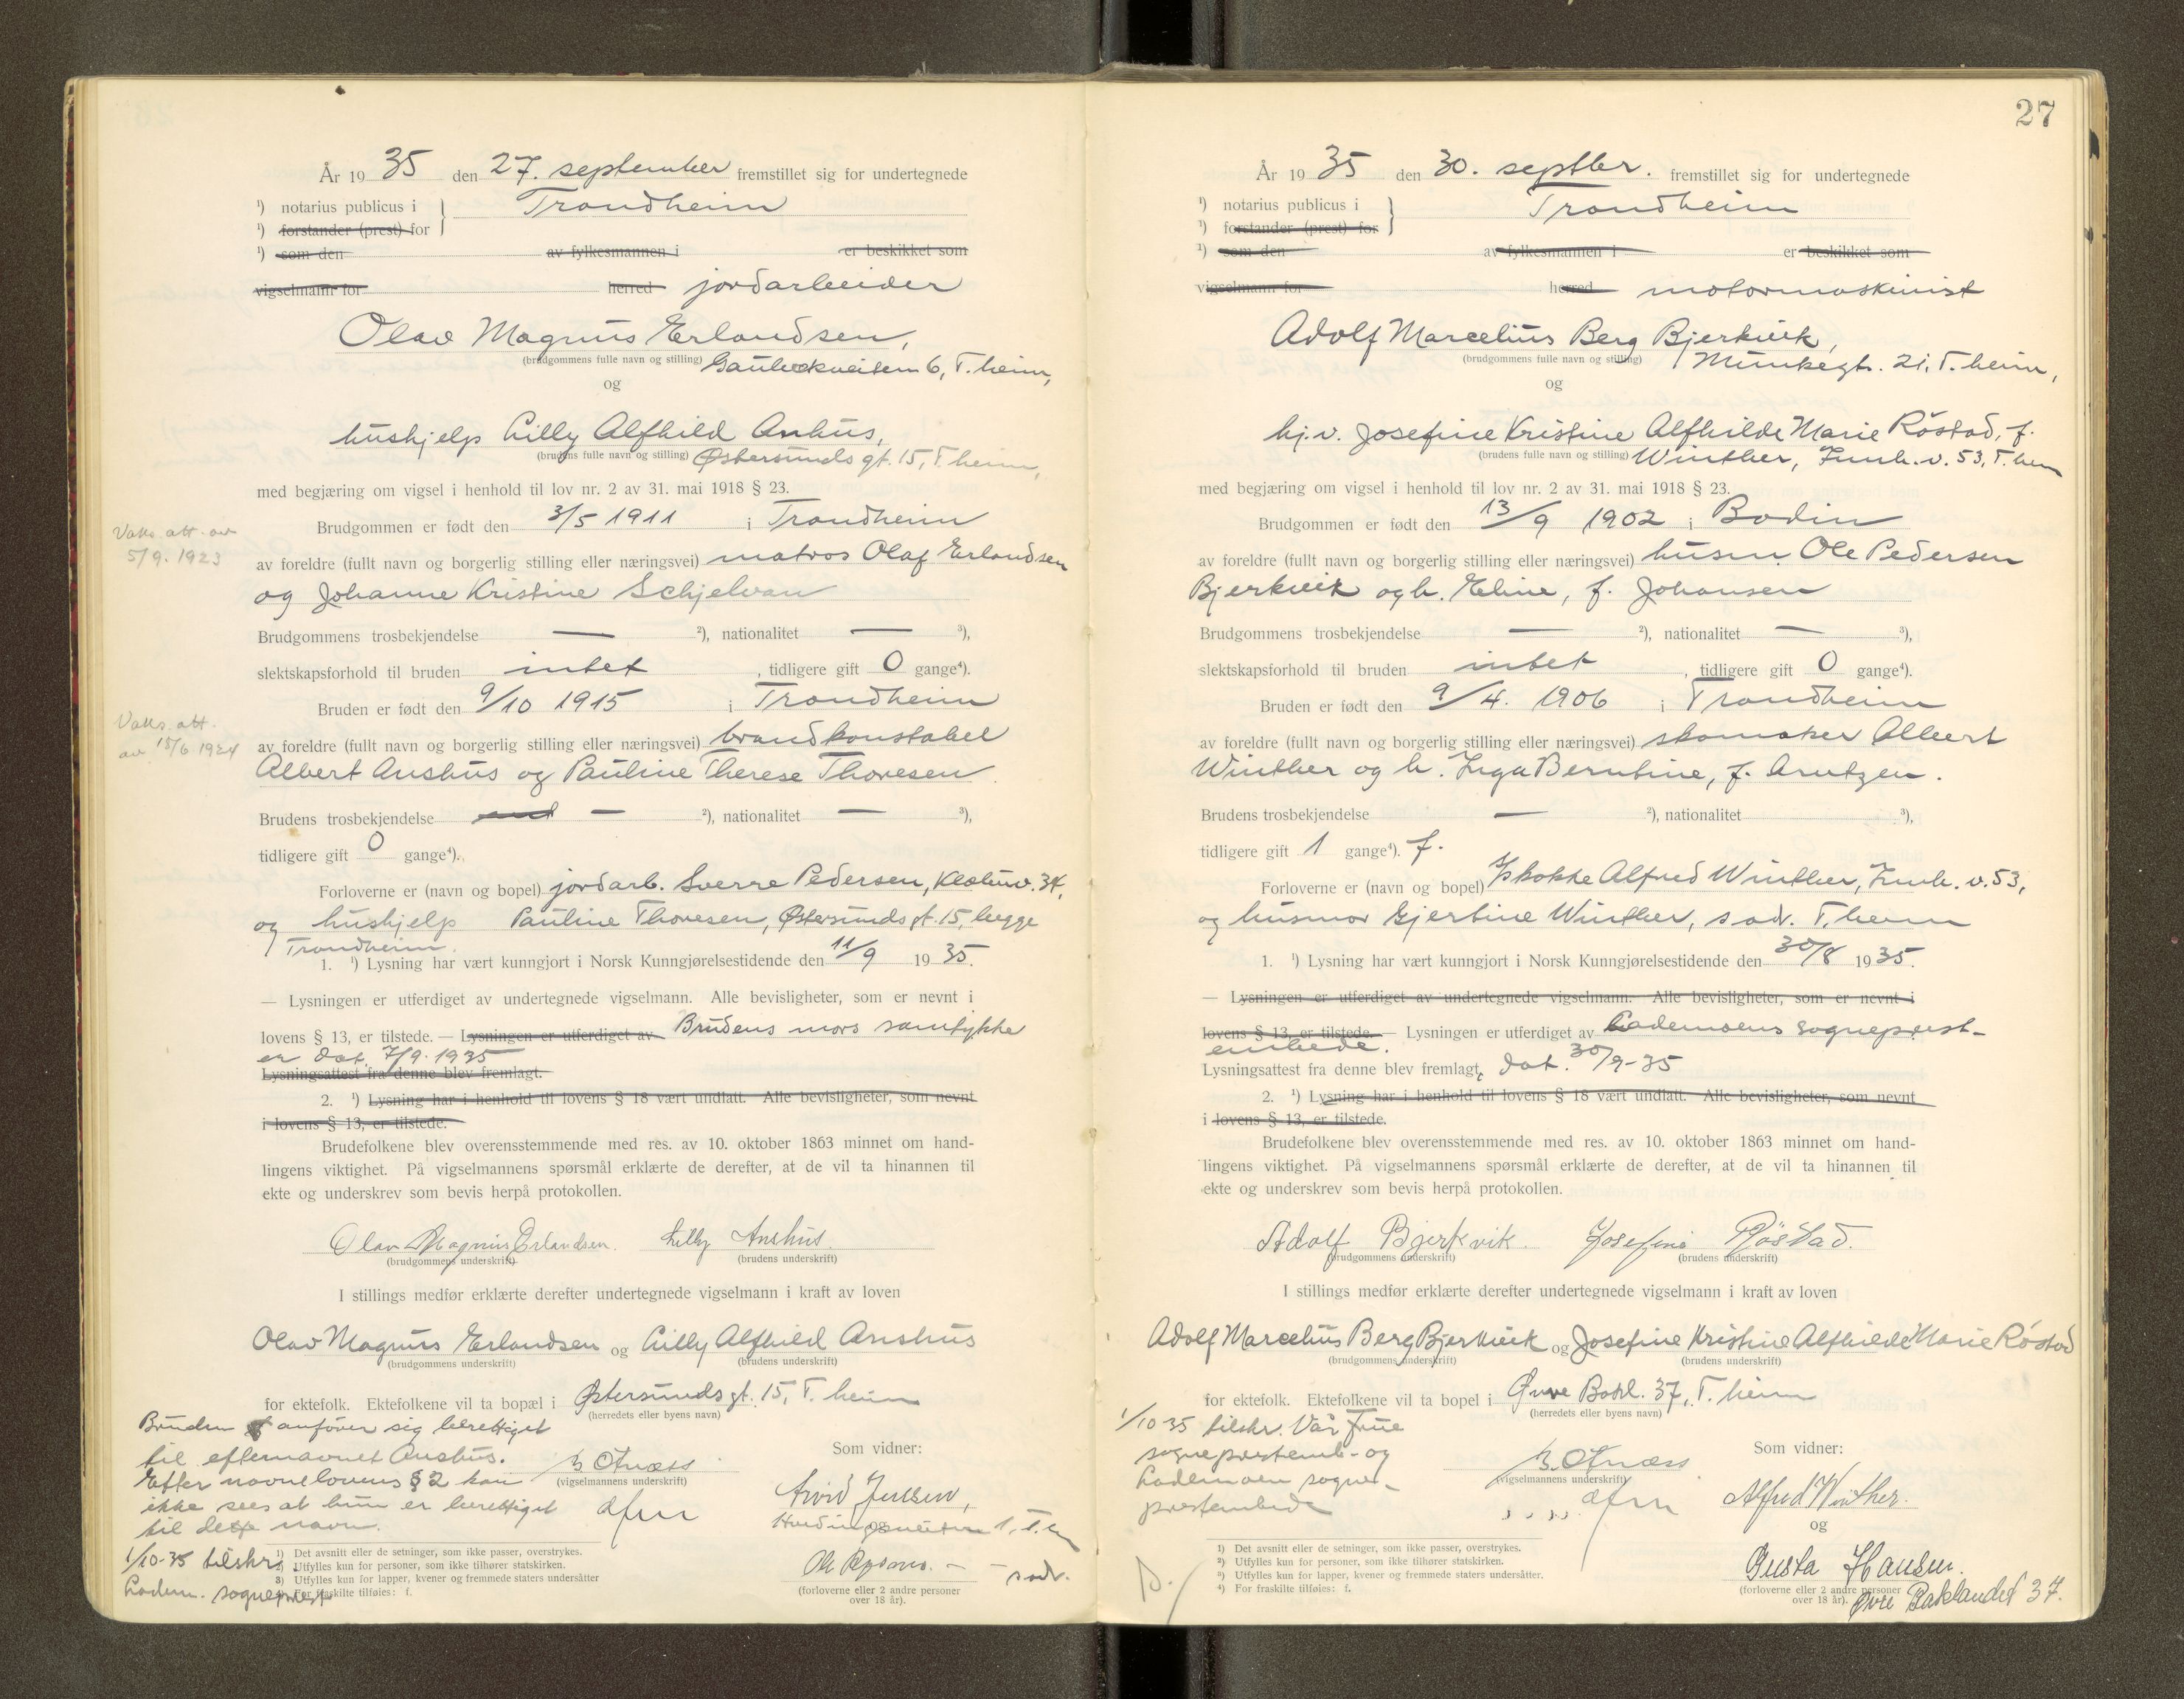 År 19 35 den 27. september fremstillet sig for undertegnede
¹) notarius publicus i Trondheim
¹) forstander (prest) for
¹) som den av fylkesmannen i er beskikket som
vigselmann for herred jordarbeider
Olav Magnus Erlandsen,
(brudgommens fulle navn og stilling) 6, T.heim,
og
hushjelp Lilly Alfhild Anhus,
(brudens fulle navn og stilling) Østersundsgt. 15, T.heim,
med begjæring om vigsel i henhold til lov nr. 2 av 31. mai 1918 § 23.
Vaks. att. av
5/9. 1923
Brudgommen er født den 3/5 1911 i Trondheim
av foreldre (fullt navn og borgerlig stilling eller næringsvei) matros Olaf Erlandsen
og Johanne Kristine Schjelvan
Brudgommens trosbekjendelse — ²), nationalitet — ³),
slektskapsforhold til bruden intet , tidligere gift 0 gange⁴).
Bruden er født den 9/10 1915 i Trondheim
Vaks. att.
av 15/6 1924
av foreldre (fullt navn og borgerlig stilling eller næringsvei) brandkonstabel
Albert Anshus og Pauline Therese Thoresen
Brudens trosbekjendelse — ²), nationalitet — ³),
tidligere gift 0 gange⁴).
Forloverne er (navn og bopel) jordarb. Sverre Pedersen, 34,
og hushjelp Pauline Thoresen, Østersundsgt. 15, begge
Trondheim.
1. ¹) Lysning har vært kunngjort i Norsk Kunngjørelsestidende den 11/9 19 35.
— Lysningen er utferdiget av undertegnede vigselmann. Alle bevisligheter, som er nevnt i
lovens § 13, er tilstede. — Lysningen er utferdiget av Brudens mors samtykke
er dat. 7/9. 1935
Lysningsattest fra denne blev fremlagt.
2. ¹) Lysning har i henhold til lovens § 18 vært undlatt. Alle bevisligheter, som nevnt
i lovens § 13, er tilstede.
Brudefolkene blev overensstemmende med res. av 10. oktober 1863 minnet om hand-
lingens viktighet. På vigselmannens spørsmål erklærte de derefter, at de vil ta hinannen til
ekte og underskrev som bevis herpå protokollen.
Olav Magnus Erlandsen. Lilly Anshus.
(brudgommens underskrift) (brudens underskrift)
I stillings medfør erklærte derefter undertegnede vigselmann i kraft av loven
Olav Magnus Erlandsen og Lilly Alfhild Anshus
(brudgommens underskrift) (brudens underskrift)
for ektefolk. Ektefolkene vil ta bopæl i Østersundsgt. 15, T.heim
(herredets eller byens navn)
Bruden anfører sig berettiget
til efternavnet Anshus.
Efter navnelovens § 2 kan
ikke sees at hun er berettiget
til dette navn.
1/10-35 tilskr.
Ladem. sogneprest
(vigselmannens underskrift)
Som vidner:
Arvid Jensen,
og
— sadr.
(forloverne eller 2 andre personer
over 18 år).
¹) Det avsnitt eller de setninger, som ikke passer, overstrykes.
²) Utfylles kun for personer, som ikke tilhører statskirken.
3) Utfylles kun for lapper, kvener og fremmede staters undersåtter
⁴) For fraskilte tilføies: f.
27
År 19 35 den 30. septbr. fremstillet sig for undertegnede
¹) notarius publicus i Trondheim
¹) forstander (prest) for
¹) som den av fylkesmannen i er beskikket som
vigselmann for herred motormaskinist
Adolf Marcelius Berg Bjerkvik,
(brudgommens fulle navn og stilling) Munkegt. 21, T.heim,
og
hj.v. Josefine Kristine Alfhilde Marie Röstad, f.
(brudens fulle navn og stilling) Winther, Innh.v. 53, T.heim
med begjæring om vigsel i henhold til lov nr. 2 av 31. mai 1918 § 23.
Brudgommen er født den 13/9 1902 i Bodin
av foreldre (fullt navn og borgerlig stilling eller næringsvei) husm. Ole Pedersen
Bjerkvik og h. Eline, f. Johansen
Brudgommens trosbekjendelse — ²), nationalitet — ³),
slektskapsforhold til bruden intet , tidligere gift 0 gange⁴).
Bruden er født den 9/4. 1906 i Trondheim
av foreldre (fullt navn og borgerlig stilling eller næringsvei) skomaker Albert
Winther og h. Inga Berntine, f. Arntzen.
Brudens trosbekjendelse — ²), nationalitet ³),
tidligere gift 1 gange⁴). f.
Forloverne er (navn og bopel) Alfred Winther, Innh.v. 53,
og husmor Gjertine Winther, sadr. T.heim
1. ¹) Lysning har vært kunngjort i Norsk Kunngjørelsestidende den 30/8 19 35.
— Lysningen er utferdiget av undertegnede vigselmann. Alle bevisligheter, som er nevnt i
lovens § 13, er tilstede. — Lysningen er utferdiget av Lademoens sogneprest-
embede.
Lysningsattest fra denne blev fremlagt, dat. 30/9-35
2. ¹) Lysning har i henhold til lovens § 18 vært undlatt. Alle bevisligheter, som nevnt
i lovens § 13, er tilstede.
Brudefolkene blev overensstemmende med res. av 10. oktober 1863 minnet om hand-
lingens viktighet. På vigselmannens spørsmål erklærte de derefter, at de vil ta hinannen til
ekte og underskrev som bevis herpå protokollen.
Adolf Bjerkvik. Josefine Röstad.
(brudgommens underskrift) (brudens underskrift)
I stillings medfør erklærte derefter undertegnede vigselmann i kraft av loven
Adolf Marcelius Berg Bjerkvik og Josefine Kristine Alfhilde Marie Röstad
(brudgommens underskrift) (brudens underskrift)
for ektefolk. Ektefolkene vil ta bopel i Øvre Bakl. 37, T.heim
(herredets eller byens navn)
1/10 35 tilskr. Vår Frue
sogneprestemb- og
Lademoen sogne-
prestembede
(vigselmannens underskrift)
Som vidner:
Alfred Winther.
og
Gusta Hansen.
(forloverne eller 2 andre personer
over 18 år). Øvre Baklandet 37.
¹) Det avsnitt eller de setninger, som ikke passer, overstrykes.
²) Utfylles kun for personer, som ikke tilhører statskirken.
³) Utfylles kun for lapper, kvener og fremmede staters undersåtter.
⁴) For fraskilte tilføies: f.